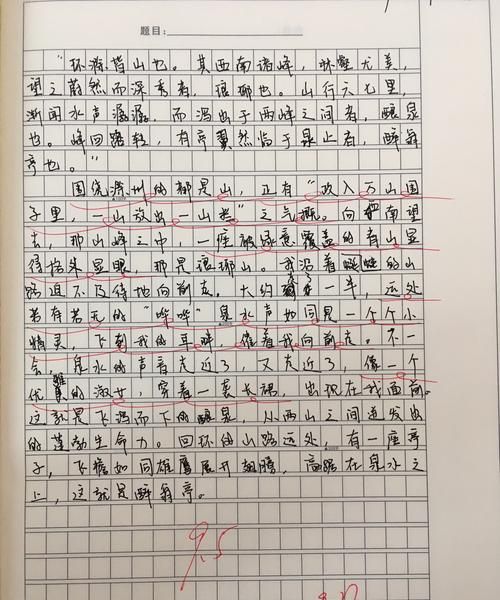 题目:
"环滁皆山也。其西南诸峰,林壑尤美,
望之蔚然而深秀者,琅琊也。山行六七里,
渐闻水声潺潺,而泻出于两峰之间者,酿泉
也。峰回路转,有亭翼然临于泉上者,醉翁
亭也。"
围绕滁州的都是山,正有"政入万山围
子里,一山放出一山拦"之气概。向西南望
去,那山峰之中,一座被绿意覆盖的青山显
得格外显眼,那是琅琊山。我沿着蜿蜒的山
路迫不及待地向前走。大约走了一半,远处
若有若无的"哗哗"泉水声如同是一个个小
精灵,飞到我的耳畔,催着我向前走。不一
会,泉水的声音走近了,又走近了,像一个
优雅的淑女,穿着一袭长裙,出现在我面前。
这就是飞泻而下的酿泉,从两山之间迸发出
的蓬勃生命力。回环的山路远处,有一座亭
子,飞檐如同雄鹰展开翅膀,高踞在泉水之
上,这就是醉翁亭。
95